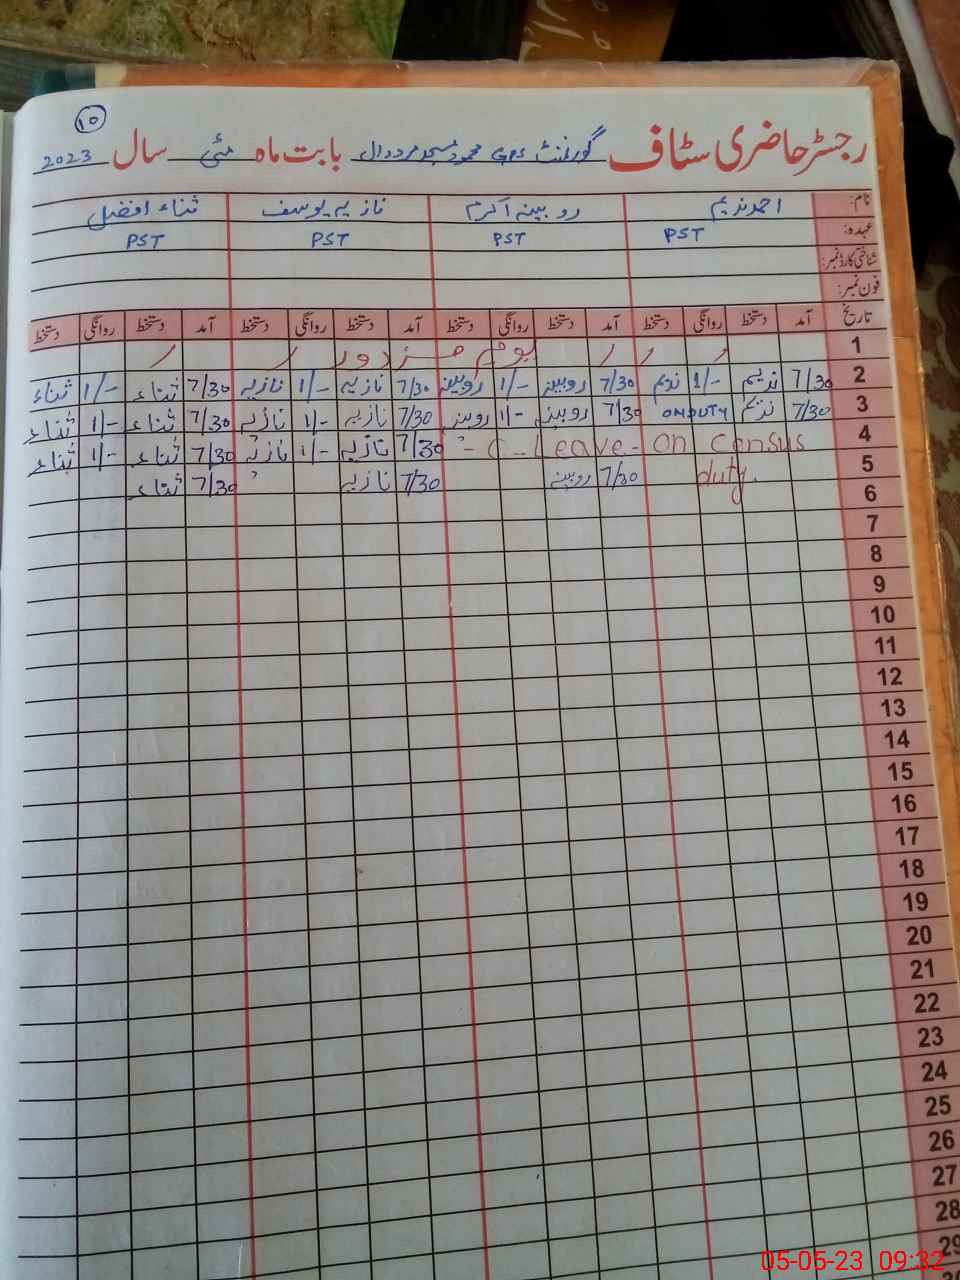 ۱۰
رجسٹر حاضری سٹاف گورنمنٹ GPS محمود مسجد بابت ماہ مئی سال 2023
نام: احمد ندیم روبینہ اکرم نازیہ یوسف ثناء افضل
عہدہ: PST PST PST PST
شناختی کارڈ نمبر:
فون نمبر:
تاریخ آمد دستخط روانگی دستخط آمد دستخط روانگی دستخط آمد دستخط روانگی دستخط آمد دستخط روانگی دستخط
1 یوم مزدور
2 7/30 ندیم 1/- ندیم 7/30 روبینہ 1/- روبینہ 7/30 نازیہ 1/- نازیہ 7/30 ثناء 1/- ثناء
3 7/30 ندیم ONDUTY 7/30 روبینہ 1/- روبینہ 7/30 نازیہ 1/- نازیہ 7/30 ثناء 1/- ثناء
4 C-Leave- on census 7/30 نازیہ 1/- نازیہ 7/30 ثناء 1/- ثناء
5 duty. 7/30 روبینہ 7/30 نازیہ 7/30 ثناء
6
7
8
9
10
11
12
13
14
15
16
17
18
19
20
21
22
23
24
25
26
27
28
29
05-05-23 09:32